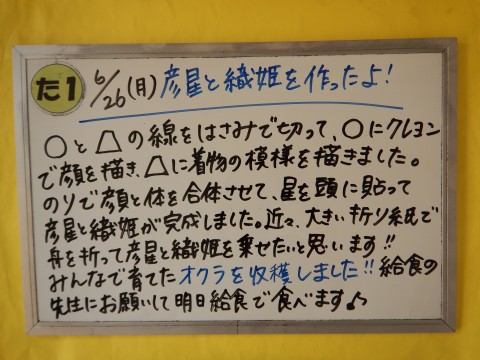 た1 6/26(月)彦星と織姫を作ったよ!
○と△の線をはさみで切って、○にクレヨン
で顔を描き、△に着物の模様を描きました。
のりで顔と体を合体させて、星を頭に貼って
彦星と織姫が完成しました。近々、大きい折り紙で
舟を折って彦星と織姫を乗せたいと思います!!
みんなで育てたオクラを収穫しました!!給食の
先生にお願いして明日給食で食べます♪